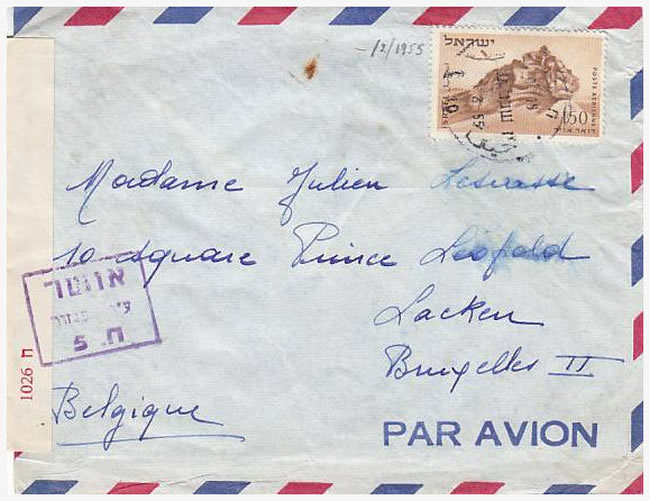 -/2/1955
ישראל
ISRAEL
POSTE AERIENNE
150
Madame Julien
10 square Prince Léopold
Laeken
Bruxelles II
Belgique
PAR AVION
אושר
ח. 5
1026 ח